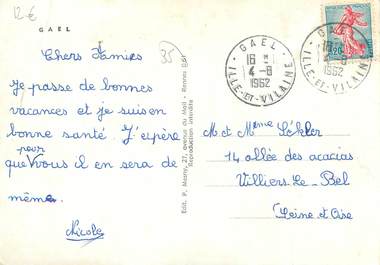 12€
GAEL
35
Chers Amies
Je passe de bonnes
vacances et je suis en
bonne santé J'espère
que pour vous il en sera de
même.
Nicole
Edit. P. Mosny, 27, avenue du Mail - Rennes
Reproduction interdite
GAEL
16 H
4-8
1962
ILLE-ET-VILAINE
GAEL
16 H
4-8
1962
ILLE-ET-VILAINE
0,20
M et Mme
14 allée des acacias
Villiers Le Bel
Seine et Oise